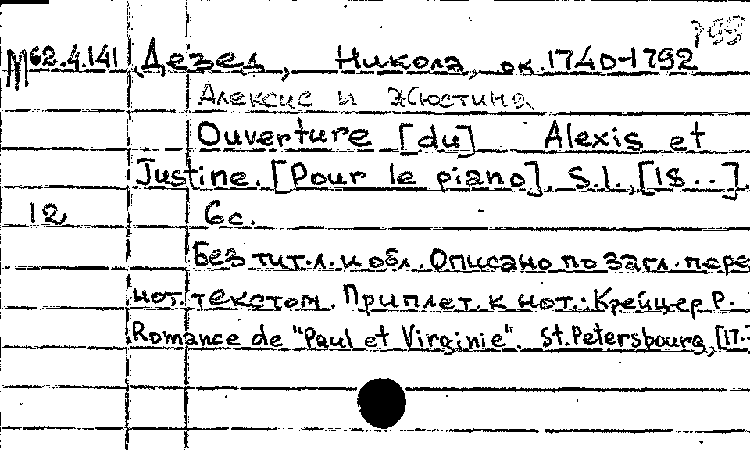 М62.4.141 Дезед, Никола, ок.1740-1792
Алексис и Жюстина
Ouverture [du] Alexis et
Justine. [Pour le piano]. S.l., [18..].
12 6с.
Без тит.л. и обл. Описано по загл. пере
нот. текстом. Приплет. к нот.: Крейцер Р.
Romance de "Paul et Virginie". St.Petersbourg, [17.